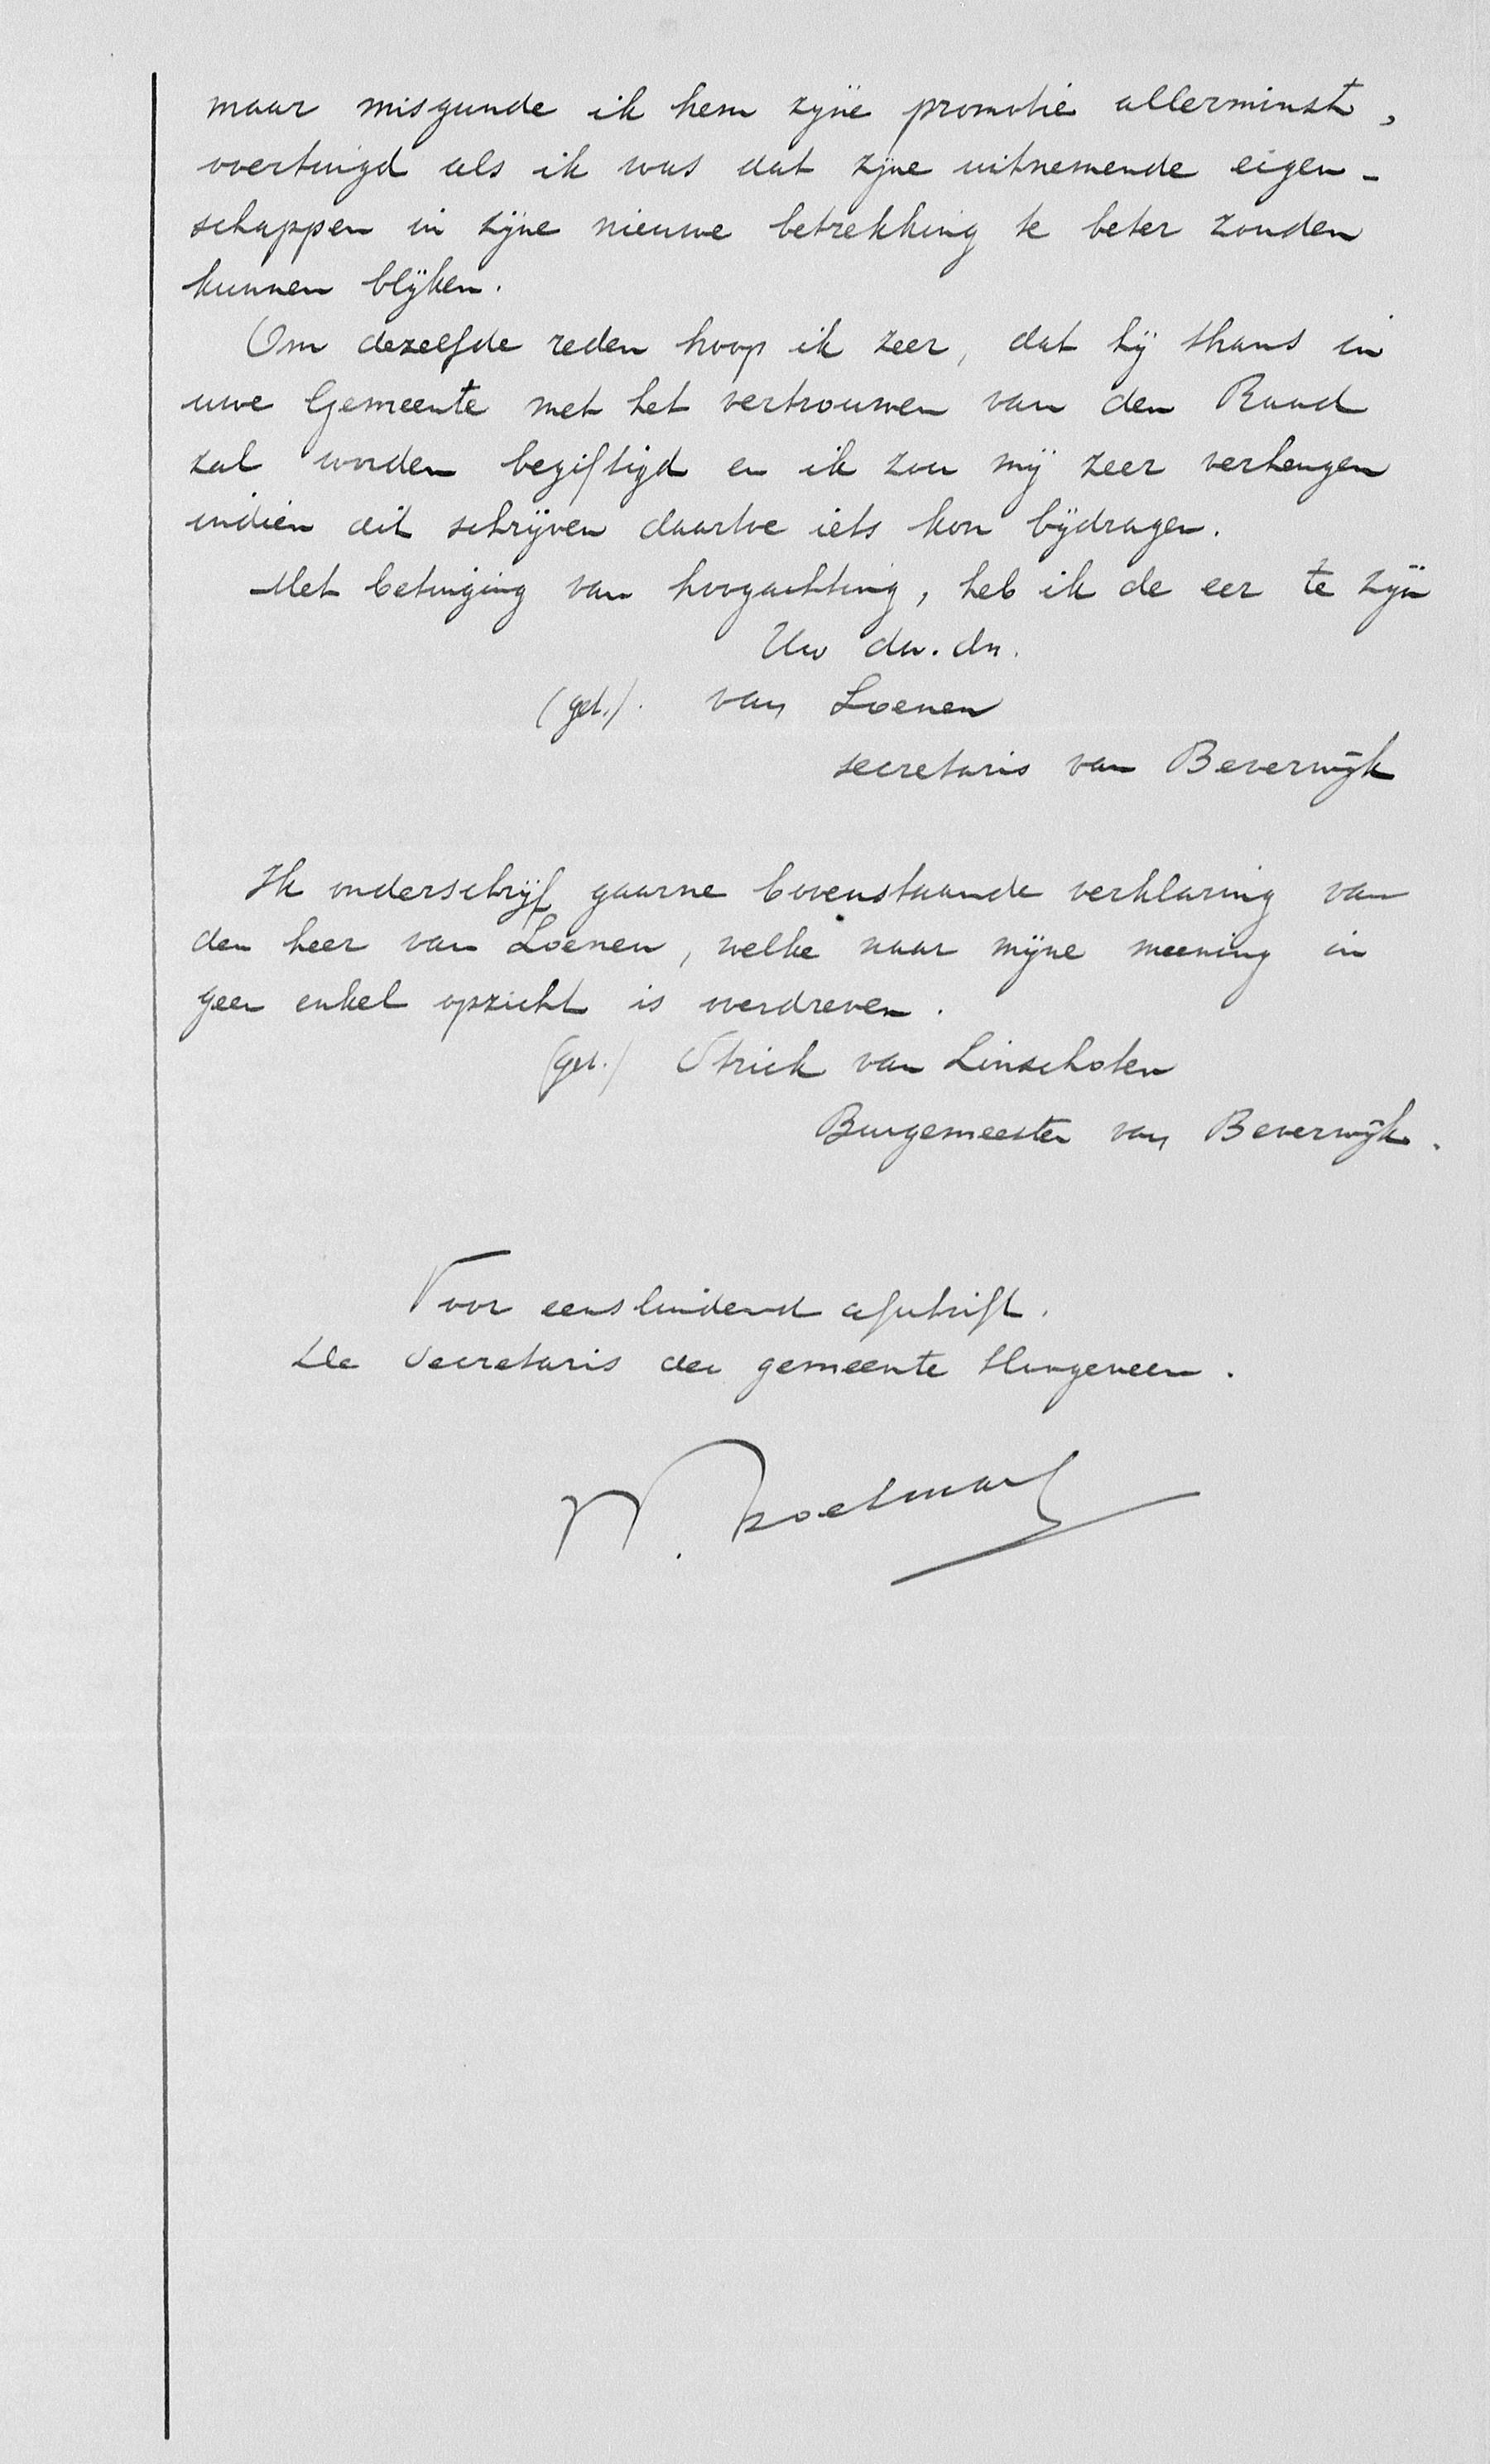 maar misgunde ik hem zijne promotie allerminst,
overtuigd als ik was dat zijne uitnemende eigen-
schappen in zijne nieuwe betrekking te beter zouden
kunnen blijken.
Om dezelfde reden hoop ik zeer, dat hij thans in
uwe Gemeente met het vertrouwen van den Raad
zal worden begiftigd en ik zou mij zeer verheugen
indien dit schrijven daartoe iets kon bijdragen.
Met betuiging van hoogachting, heb ik de eer te zijn
Uw dw. dn.
(get.). van Loenen
secretaris van Beverwijk
Ik onderschrijf gaarne bovenstaande verklaring van
den heer van Loenen, welke naar mijne meening in
geen enkel opzicht is overdreven.
(get.) Strick van Linschoten
Burgemeester van Beverwijk.
Voor eensluidend afschrift.
De Secretaris der gemeente Hoogeveen.